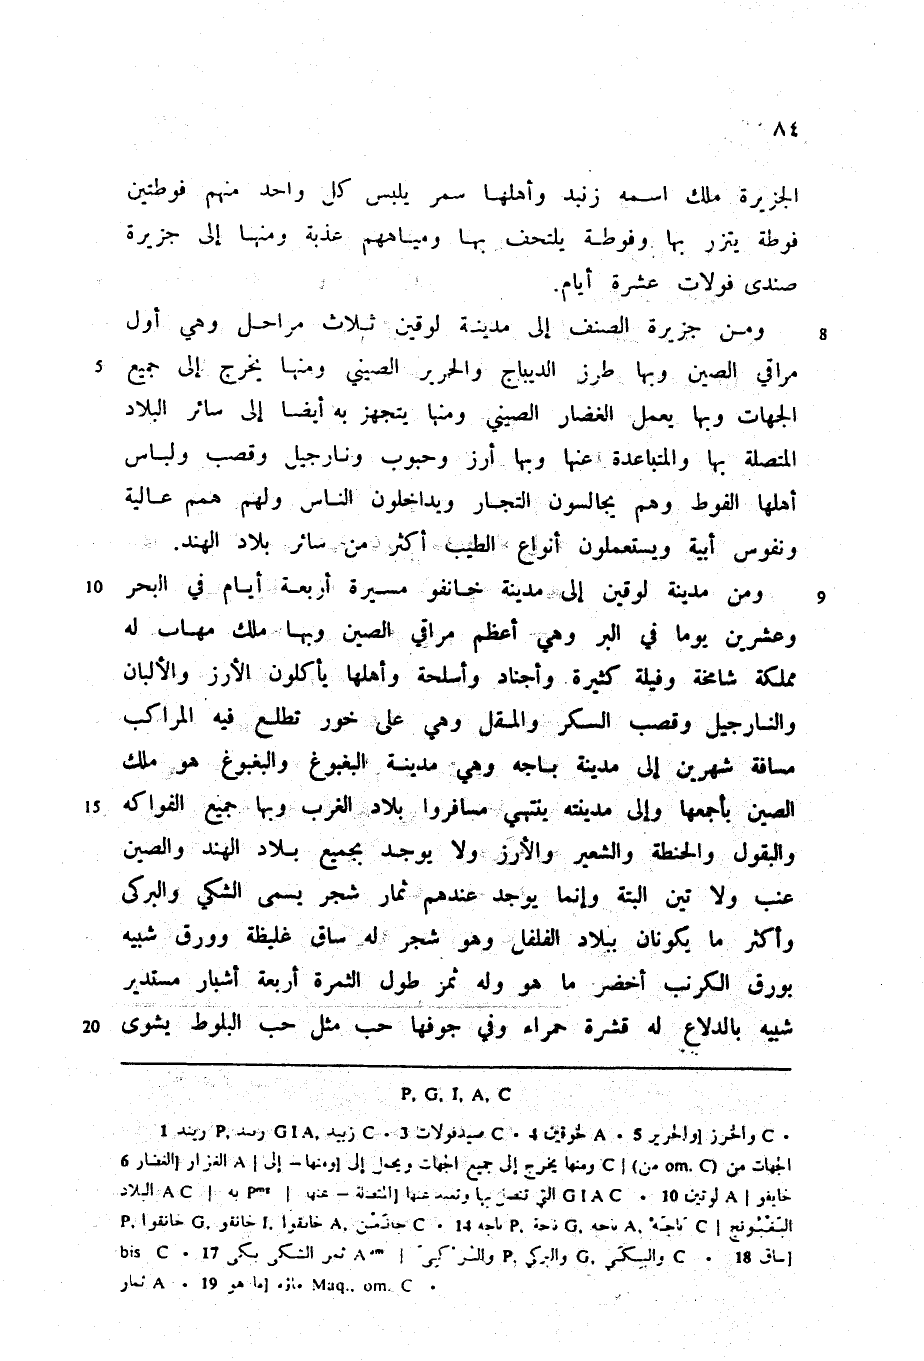 ٨٤
الجزيرة ملك اسمه زنبد وأهلها سمر يلبس كل واحد منهم فوطتين
فوطة يتزر بها وفوطة يلتحف بها ومياههم عذبة ومنها إلى جزيرة
صندى فولات عشرة أيام.
8 ومن جزيرة الصنف إلى مدينة لوقين ثلاث مراحل وهي أول
5 مراقي الصين وبها طرز الديباج والحرير الصيني ومنها يخرج إلى جميع
الجهات وبها يعمل الغضار الصيني ومنها يتجهز به أيضا إلى سائر البلاد
المتصلة بها والمتباعدة عنها وبها أرز وحبوب ونارجيل وقصب ولباس
أهلها الفوط وهم يجالسون التجار ويداخلون الناس ولهم همم عالية
ونفوس أبية ويستعملون أنواع الطيب أكثر من سائر بلاد الهند.
9 10 ومن مدينة لوقين إلى مدينة خانفو مسيرة أربعة أيام في البحر
وعشرين يوما في البر وهي أعظم مراقي الصين وبها ملك مهاب له
مملكة شامخة وفيلة كثيرة وأجناد وأسلحة وأهلها يأكلون الأرز والألبان
والنارجيل وقصب السكر والمقل وهي على خور تطلع فيه المراكب
مسافة شهرين إلى مدينة باجه وهي مدينة البغبوغ والبغبوغ هو ملك
15 الصين بأجمعها وإلى مدينته ينتهي مسافروا بلاد الغرب وبها جميع الفواكه
والبقول والحنطة والشعير والأرز ولا يوجد بجميع بلاد الهند والصين
عنب ولا تين البتة وإنما يوجد عندهم ثمار شجر يسمى الشكي والبركى
وأكثر ما يكونان ببلاد الفلفل وهو شجر له ساق غليظة وورق شبيه
بورق الكرنب أخضر ما هو وله ثمر طول الثمرة أربعة أشبار مستدير
20 شبيه بالدلاع له قشرة حمراء وفي جوفها حب مثل حب البلوط يشوى
P, G, I, A, C
1 زبيد C • 3 صيدفولات C • 4 A • 5 والحرير] والحرز C •
6 الغضار] الفزار A | ومنها – إلى] ومنها يخرج إلى جميع الجهات ويحمل إلى C | (om. C من) الجهات من
البلاد A C | به | المتصلة – عنها] التي تتصل بها G I A C • 10 لوقين] لوتين A | خايفو
P, خانقوا G, خانقو I, خانقوا A, C • 14 باجه P, G, A, C |
bis C • 17 P, والبركي G, C • 18 ساق]
ثمار A • 19 ما هو] Maq., om. C •